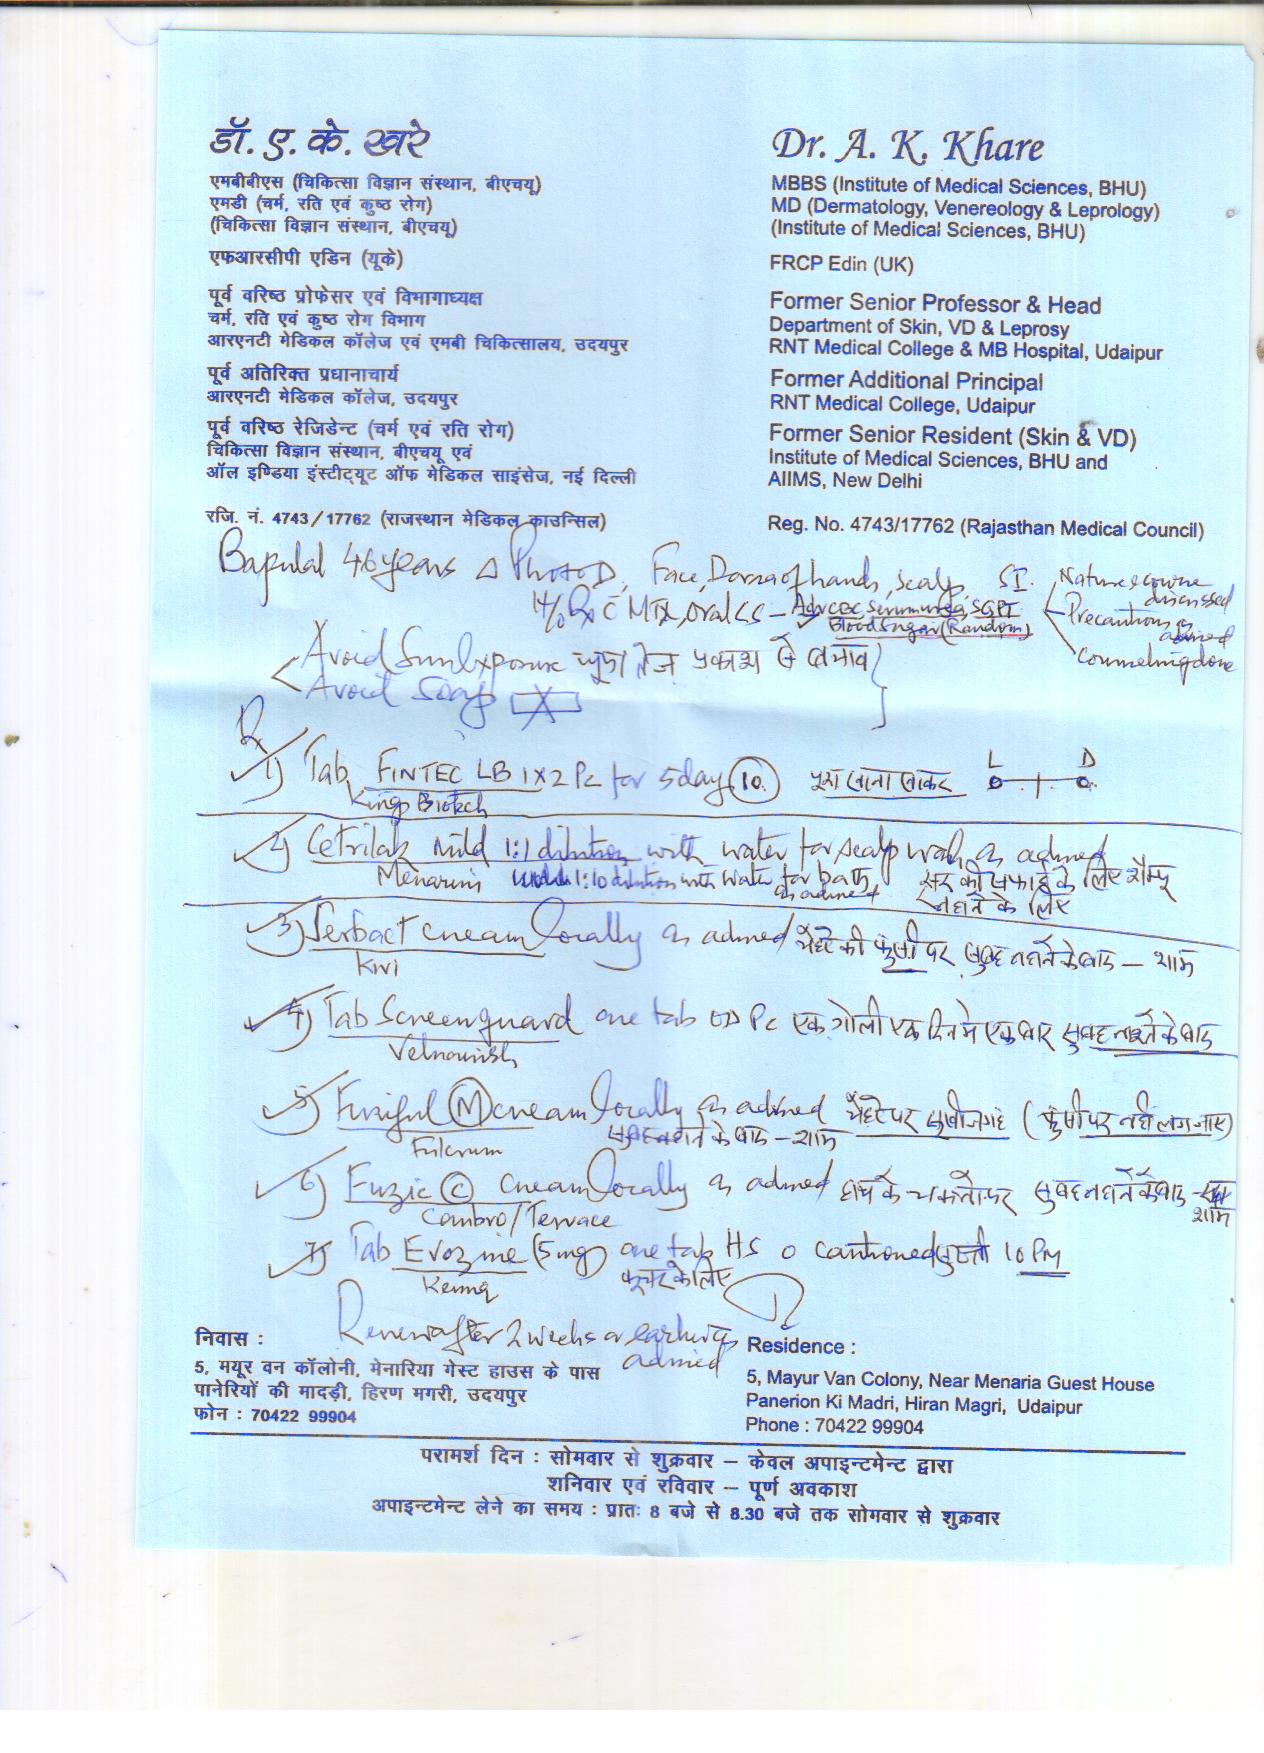 डॉ. ए. के. खरे
एमबीबीएस (चिकित्सा विज्ञान संस्थान, बीएचयू)
एमडी (चर्म, रति एवं कुष्ठ रोग)
(चिकित्सा विज्ञान संस्थान, बीएचयू)
एफआरसीपी एडिन (यूके)
पूर्व वरिष्ठ प्रोफेसर एवं विभागाध्यक्ष
चर्म, रति एवं कुष्ठ रोग विभाग
आरएनटी मेडिकल कॉलेज एवं एमबी चिकित्सालय, उदयपुर
पूर्व अतिरिक्त प्रधानाचार्य
आरएनटी मेडिकल कॉलेज, उदयपुर
पूर्व वरिष्ठ रेजिडेन्ट (चर्म एवं रति रोग)
चिकित्सा विज्ञान संस्थान, बीएचयू एवं
ऑल इण्डिया इंस्टीट्यूट ऑफ मेडिकल साइंसेज, नई दिल्ली
रजि. नं. 4743/17762 (राजस्थान मेडिकल काउन्सिल)
Dr. A. K. Khare
MBBS (Institute of Medical Sciences, BHU)
MD (Dermatology, Venereology & Leprology)
(Institute of Medical Sciences, BHU)
FRCP Edin (UK)
Former Senior Professor & Head
Department of Skin, VD & Leprosy
RNT Medical College & MB Hospital, Udaipur
Former Additional Principal
RNT Medical College, Udaipur
Former Senior Resident (Skin & VD)
Institute of Medical Sciences, BHU and
AIIMS, New Delhi
Reg. No. 4743/17762 (Rajasthan Medical Council)
Bapulal 46 years Δ Photo D, Face, Dorsa of hands, scalp SI. Nature & course
discussed
MTX, oral CS - Adv CBC, Serum urea, SGPT Precautions
Blood Sugar (Random) advised
Counseling done
Avoid Sun Exposure तेज प्रकाश से बचाव
Avoid Soap
Rx
1) Tab FINTEC LB 1x2 Pc for 5 day 10 पूरा खाना खाकर L D
Kings Biotech
2) Cetrilak Mild 1:1 dilution with water for scalp wash as advised
Menarini 1:10 dilution with water for bath सर की सफाई के लिए शैम्पू
as advised नहाने के लिए
3) Serbact cream locally as advised चेहरे की फुंसी पर सुबह नहाने के बाद - शाम
Kivi
4) Tab Screenguard one tab OD Pc एक गोली एक दिन मे एक बार सुबह नाश्ते के बाद
Velnourish
5) M cream locally as advised चेहरे पर सूखी जगह (फुंसी पर नही लगनाए)
सुबह नहाने के बाद - शाम
Fulcrum
6) Fuzic C cream locally as advised हाथ के चकतो पर सुबह नहाने के बाद -
शाम
Combro/Terrace
7) Tab Evozine (5mg) one tab HS 10 PM
के लिए
Review after 2 weeks or earlier as
advised
निवास :
5, मयूर वन कॉलोनी, मेनारिया गेस्ट हाउस के पास
पानेरियों की मादड़ी, हिरण मगरी, उदयपुर
फोन : 70422 99904
Residence :
5, Mayur Van Colony, Near Menaria Guest House
Panerion Ki Madri, Hiran Magri, Udaipur
Phone : 70422 99904
परामर्श दिन : सोमवार से शुक्रवार – केवल अपाइन्टमेन्ट द्वारा
शनिवार एवं रविवार – पूर्ण अवकाश
अपाइन्टमेन्ट लेने का समय : प्रातः 8 बजे से 8.30 बजे तक सोमवार से शुक्रवार